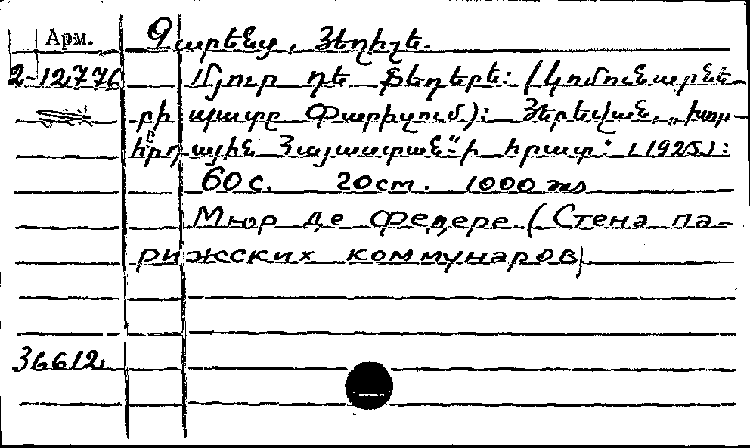 Арм. Չարենց, Եղիշե.
2-12776 Մյուր դե Ֆեդերե: (Կոմունարնե-
րի պատը Փարիզում): Յերեվան, „Խոր-
հրդային Հայաստան“-ի հրատ: (1925):
60 с. 20 cm. 1000 տպ
Мюр де Федере (Стена па-
рижских коммунаров)
36612